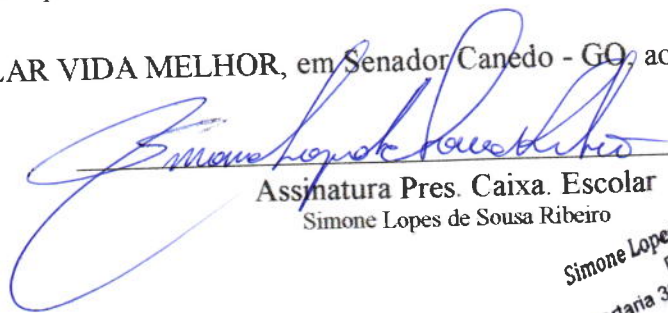 LAR VIDA MELHOR, em Senador Canedo - GO, ao
Simone Lopes de Sousa Ribeiro
Assinatura Pres. Caixa. Escolar
Simone Lopes de Sousa Ribeiro
Simone Lope
taria 3